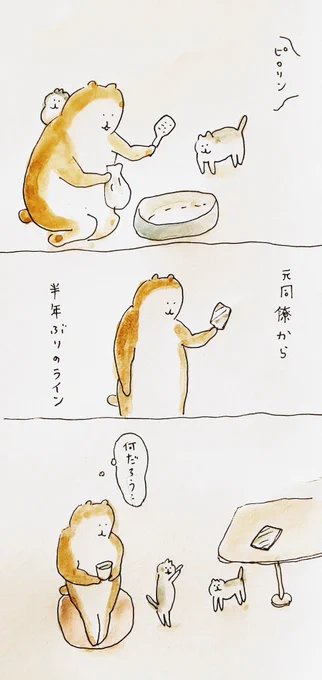 ピロリン
元同僚から
半年ぶりのライン
何だろう…